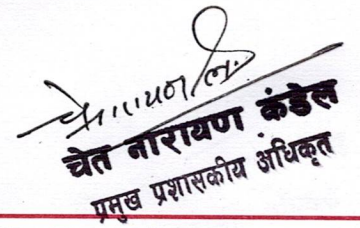 चेत नारायण कंडेल
प्रमुख प्रशासकीय अधिकृत